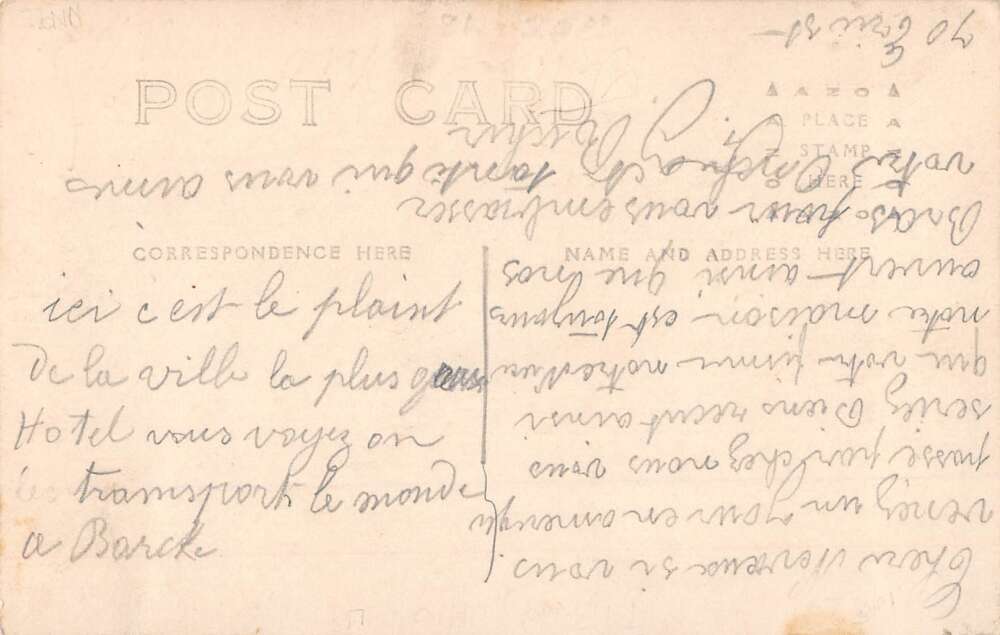 POST CARD
AZO
PLACE
STAMP
HERE
CORRESPONDENCE HERE
NAME AND ADDRESS HERE
ici c est le plaint
De la ville la plus
Hotel vous voyez on
transport le monde
a Barcke
Chere si vous
venez un jour en
passé par chez nous vous
seriez Biens recut ainsi
que votre notre
note maison est toujours
ouvert ainsi que nos
Bras pour vous embrasser
votre qui vous aimes
70 Erie st